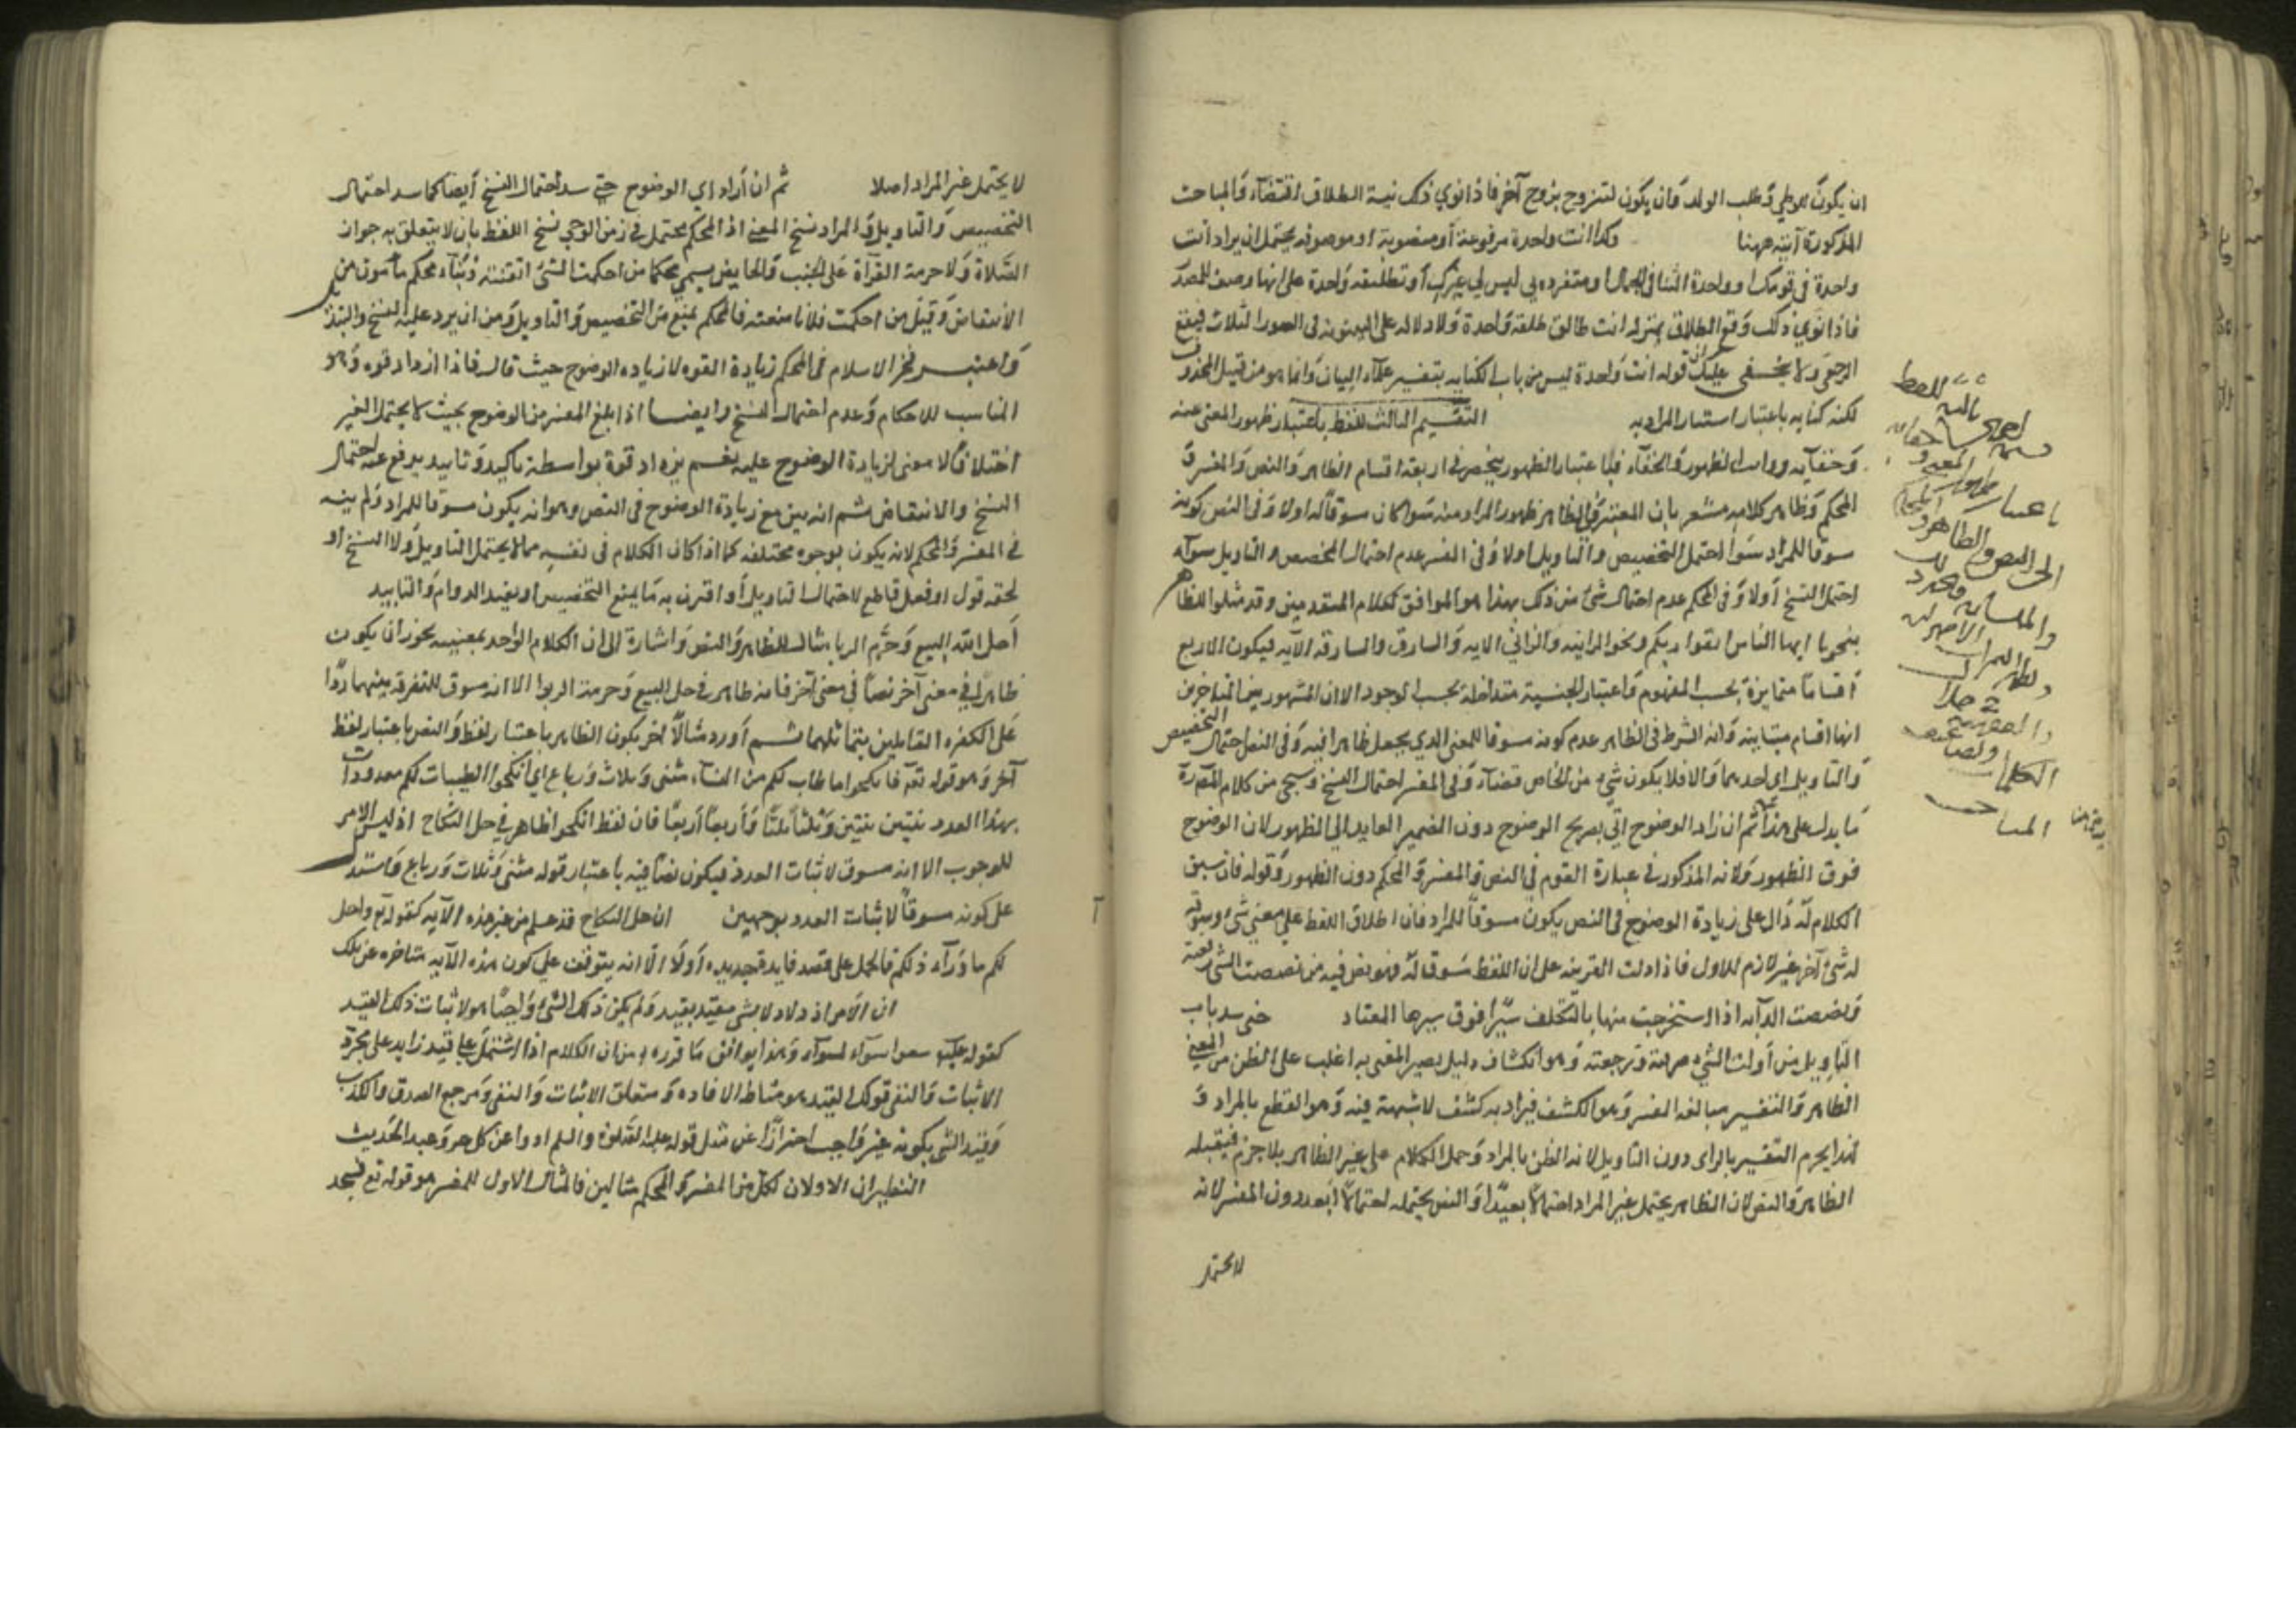 ان يكون للوطي وطلب الولد وان يكون لتتزوج بزوج آخر فاذا نوي ذلك نية الطلاق اقتضاء والمباحث
المذكورة آتية ههنا وكذا انت واحدة مرفوعة أو منصوبة او موصوفه يحتمل ان يراد انت
واحدة في قومك او واحدة النسا في الجمال او متفرده بي ليس لي غيرك أو تطليقه واحدة على انها وصف للمصدر
فاذا نوي ذلك وقع الطلاق بمنزله انت طالق طلقة واحدة ولا دلاله على البينونه في الصور الثلاث فيقع
الرجعي ولا يخفى عليك ان قوله انت واحدة ليس من باب الكنايه بتفسير علماء البيان وانما هو من قبيل المحذوف
لكنه كنايه باعتبار استتار المراد به التقسيم الثالث للفظ باعتبار ظهور المعنى عنه
وخفآيه ومراتب الظهور والخفاء فباعتبار الظهور ينحصر في اربعة اقسام الظاهر والنص والمفسر و
المحكم وظاهر كلامه مشعر بان المعتبر في الظاهر ظهور المراد منه سوا كان مسوقا له اولا وفي النص كونه
مسوقا للمراد سوا احتمل التخصيص والتاويل اولا وفي المفسر عدم احتمال التخصيص والتاويل سوآء
احتمل النسخ أولا وفي المحكم عدم احتمال شئ من ذلك وهذا هو الموافق لكلام المتقدمين وقد مثلوا للظاهر
بنحو يا ايها الناس اتقوا ربكم ونحو الزانيه والزاني الايه والسارق والسارقه الآيه فيكون الاربع
أقساما متمايزة بحسب المفهوم واعتبار الحيثية متداخلة بحسب الوجود الا ان المشهور بين المتاخرين
انها اقسام متباينه وانه اشترط في الظاهر عدم كونه مسوقا للمعنى الذي يجعل ظاهرا فيه وفي النص احتمال التخصيص
والتاويل اي احدهما والا فلا يكون شئ من الخاص نصا وفي المفسر احتمال النسخ وسيجي من كلام المصـ
ما يدل على هذا ثم ان زاد الوضوح اتي بصريح الوضوح دون الضمير العايد الي الظهور لان الوضوح
فوق الظهور ولانه المذكور في عبارة القوم في النص والمفسر والمحكم دون الظهور وقوله فان سيق
الكلام له دال على زيادة الوضوح في النص بكون مسوقا للمراد فان اطلاق اللفظ على معنى شئ وسوقه
له شئ آخر غير لازم للاول فاذا دلت القرينه على ان اللفظ مسوق له فهو نص فيه من نصصت الشئ رفعته
ونصصت الدابه اذا استخرجت منها بالتكلف سيرا فوق سيرها المعتاد حتى سد باب
التاويل من أولت الشي صرفته ورجعته وهو انكشاف دليل يصير المعنى به اغلب على الظن من المعنى
الظاهر والتفسير مبالغه الفسر وهو الكشف فيراد به كشف لا شبهة فيه وهو القطع بالمراد و
لهذا يحرم التفسير بالراى دون التاويل لانه الظن بالمراد وحمل الكلام على غير الظاهر بلا جزم فيقبله
الظاهر والنص لان الظاهر يحتمل غير المراد احتمالا بعيدا والنص يحتمله احتمالا ابعد دون المفسر لانه
لا يحتمل
لا يحتمل غير المراد اصلا ثم ان أراد اي الوضوح حتى سد احتمال النسخ أيضا كما سد احتمال
التخصيص والتاويل والمراد نسخ المعنى اذ المحكم يحتمل في زمن الوحي نسخ اللفظ بان لا يتعلق به جواز
الصلاة ولا حرمة القرآة على الجنب والحايض يسمى محكما من احكمت الشئ اتقنته وبناء محكم مأمون من
الانتقاض وقيل من احكمت فلانا منعته فالمحكم يمتنع من التخصيص والتاويل ومن ان يرد عليه النسخ والتبدل
واعتبر فخر الاسلام في المحكم زيادة القوه لا زياده الوضوح حيث قال فاذا ازداد قوه وهو
المناسب للاحكام وعدم احتمال النسخ وايضا اذا بلغ المفسر من الوضوح بحيث لا يحتمل الغير
اختلافا لا معنى لزيادة الوضوح عليه نعم يزداد قوة بواسطة تاكيد وتاييد يدفع عنه احتمال
النسخ والانتقاض ثم انه بين مع زيادة الوضوح في النص وهو انه يكون مسوقا للمراد ولم يبينه
في المفسر والمحكم لانه يكون بوجوه مختلفه كما اذا كان الكلام في نفسه مما لا يحتمل التاويل ولا النسخ او
لحقه قول او فعل قاطع لاحتمال التاويل أو اقترن به ما يمنع التخصيص او يفيد الدوام والتابيد
أحل الله البيع وحرم الربا مثال للظاهر والنص واشارة الى ان الكلام الواحد بعينه يجوز ان يكون
ظاهرا في معنى آخر نصا في معنى آخر فانه ظاهر في حل البيع وحرمة الربوا الا انه مسوق للتفرقه بينهما ردا
على الكفره القايلين بتماثلهما ثم أورد مثالا آخر يكون الظاهر باعتبار لفظ والنص باعتبار لفظ
آخر وهو قوله تعه فانكحوا ما طاب لكم من النسآء مثنى وثلاث ورباع اي انكحوا الطيبات لكم معدودات
بهذا العدد ثنتين ثنتين وثلثا ثلثا وأربعا أربعا فان لفظ انكحوا ظاهر في حل النكاح اذ ليس الامر
للوجوب الا انه مسوق لاثبات العدد فيكون نصا فيه باعتبار قوله مثنى وثلاث ورباع واستدل
على كونه مسوقا لاثبات العدد بوجهين ان حل النكاح قد علم من غير هذه الآيه كقوله تع واحل
لكم ما ورآء ذلكم فالحمل على قصد فايدة جديده أولا الا انه يتوقف على كون هذه الآيه متاخره عن تلك
ان الامر اذ ولاد لا بشئ مقيد بقيد ولم يكن ذلك الشئ واجبا هو لاثبات ذلك القيد
كقوله عليه سوآء بسوآء وهذا يوافق ما قرره من ان الكلام اذا اشتمل على قيد زايد على مجرد
الاثبات والنفي فذلك القيد هو مناط الافاده ومتعلق الاثبات والنفي ومرجع الصدق والكذب
وقيد الشئ بكونه غير واجب احترازا عن مثل قوله عليه الصلوة والسلم ادوا عن كل حر وعبد الحديث
النظيران الاولان لكل من المفسر والمحكم مثالين فالمثال الاول للمفسر هو قوله تع فسجد